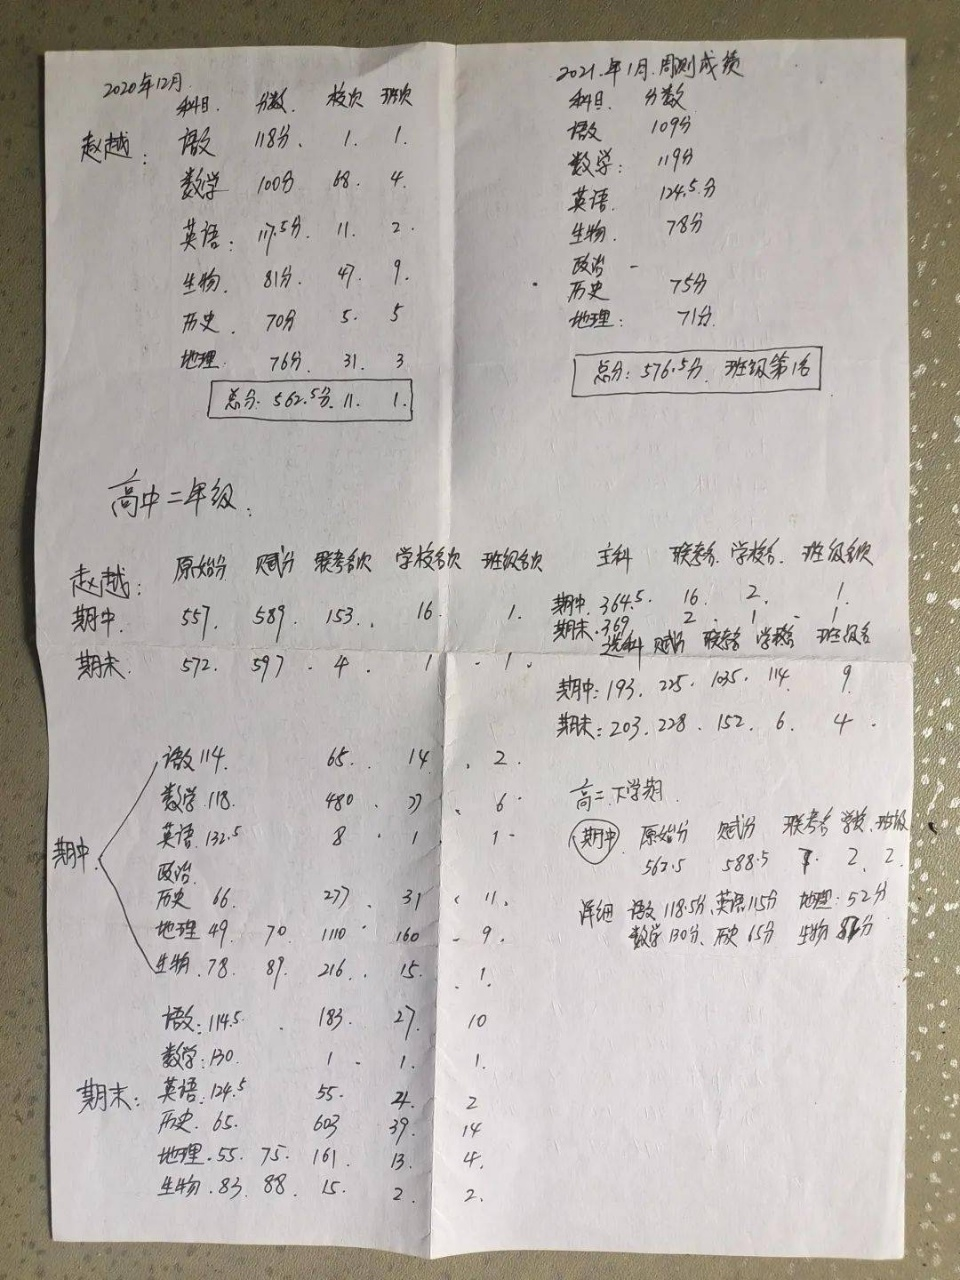 2020年12月
科目. 分数. 校次 班次
赵越: 语文 118分. 1. 1.
数学 100分 68. 4.
英语: 117.5分. 11. 2.
生物. 81分. 47. 9.
历史. 70分 5. 5
地理. 76分. 31. 3
总分: 562.5分. 11. 1.
2021.年1月.周测成绩
科目. 分数
语文 109分
数学: 119分
英语. 124.5分
生物. 78分
政治 -
历史 75分
地理: 71分.
总分: 576.5分. 班级第1名
高中二年级.
赵越: 原始分 赋分 联考名次 学校名次 班级名次
期中. 557. 589. 153. 16. 1.
期末. 572. 597. 4. 1. 1.
主科 联考名. 学校名. 班级名次
期中. 364.5. 16. 2. 1.
期末. 369 2. 1. 1
选科 赋分 联考名 学校名 班级名
期中: 193. 225. 1035. 114. 9.
期末: 203. 228. 152. 6. 4.
期中. 语文 114. 65. 14. 2.
数学 118. 480. 77. 6.
英语: 132.5 8. 1. 1.
政治.
历史 66. 277. 31. 11.
地理 49. 70. 1110. 160. 9.
生物. 78. 89. 216. 15. 1.
期末: 语文: 114.5. 183. 27. 10
数学: 130. 1. 1. 1.
英语. 124.5 55. 2
历史. 65. 603 39. 14
地理. 55. 75. 161. 13. 4.
生物. 83. 88. 15. 2. 2.
高二.下学期.
期中 原始分 赋分 联考名 学校. 班级
562.5 588.5 7. 2. 2.
详细 语文 118.5分. 英语 115分 地理: 52分
数学 130分. 历史 65分 生物